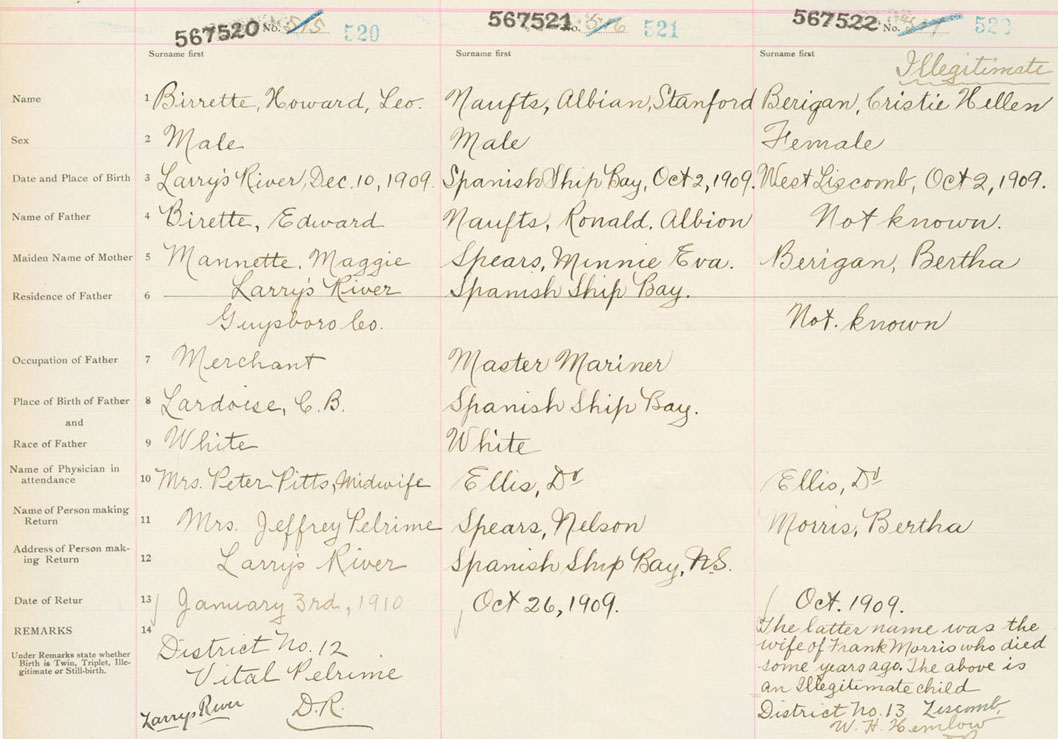 567520 No. 515 520
567521 No. 516 521
567522 No. 522
Surname first Surname first Surname first
Illegitimate
Name 1 Birrette, Howard, Leo. Naufts, Albian, Stanford Berigan, Cristie Hellen
Sex 2 Male Male Female
Date and Place of Birth 3 Larry's River, Dec. 10, 1909. Spanish Ship Bay, Oct 2, 1909. West Liscomb, Oct 2, 1909.
Name of Father 4 Birette, Edward Naufts, Ronald. Albion Not known.
Maiden Name of Mother 5 Mannette, Maggie Spears, Minnie Eva. Berigan, Bertha
Residence of Father 6 Larry's River Spanish Ship Bay.
Guysboro Co. Not. known
Occupation of Father 7 Merchant Master Mariner
Place of Birth of Father 8 Lardoise, C.B. Spanish Ship Bay.
and
Race of Father 9 White White
Name of Physician in
attendance 10 Mrs. Peter Pitts, Midwife Ellis, Dr Ellis, Dr
Name of Person making
Return 11 Mrs. Jeffrey Pelrime Spears, Nelson Morris, Bertha
Address of Person mak-
ing Return 12 Larrys River Spanish Ship Bay, N.S.
Date of Retur 13 January 3rd, 1910 Oct 26, 1909. Oct. 1909.
REMARKS 14
Under Remarks state whether
Birth is Twin, Triplet, Ille-
gitimate or Still-birth.
District No. 12
Vital Pelrime
Larrys River D.R.
The latter name was the
wife of Frank Morris who died
some years ago. The above is
an Illegitimate child
District No. 13 Liscomb,
W. H. Hemlow